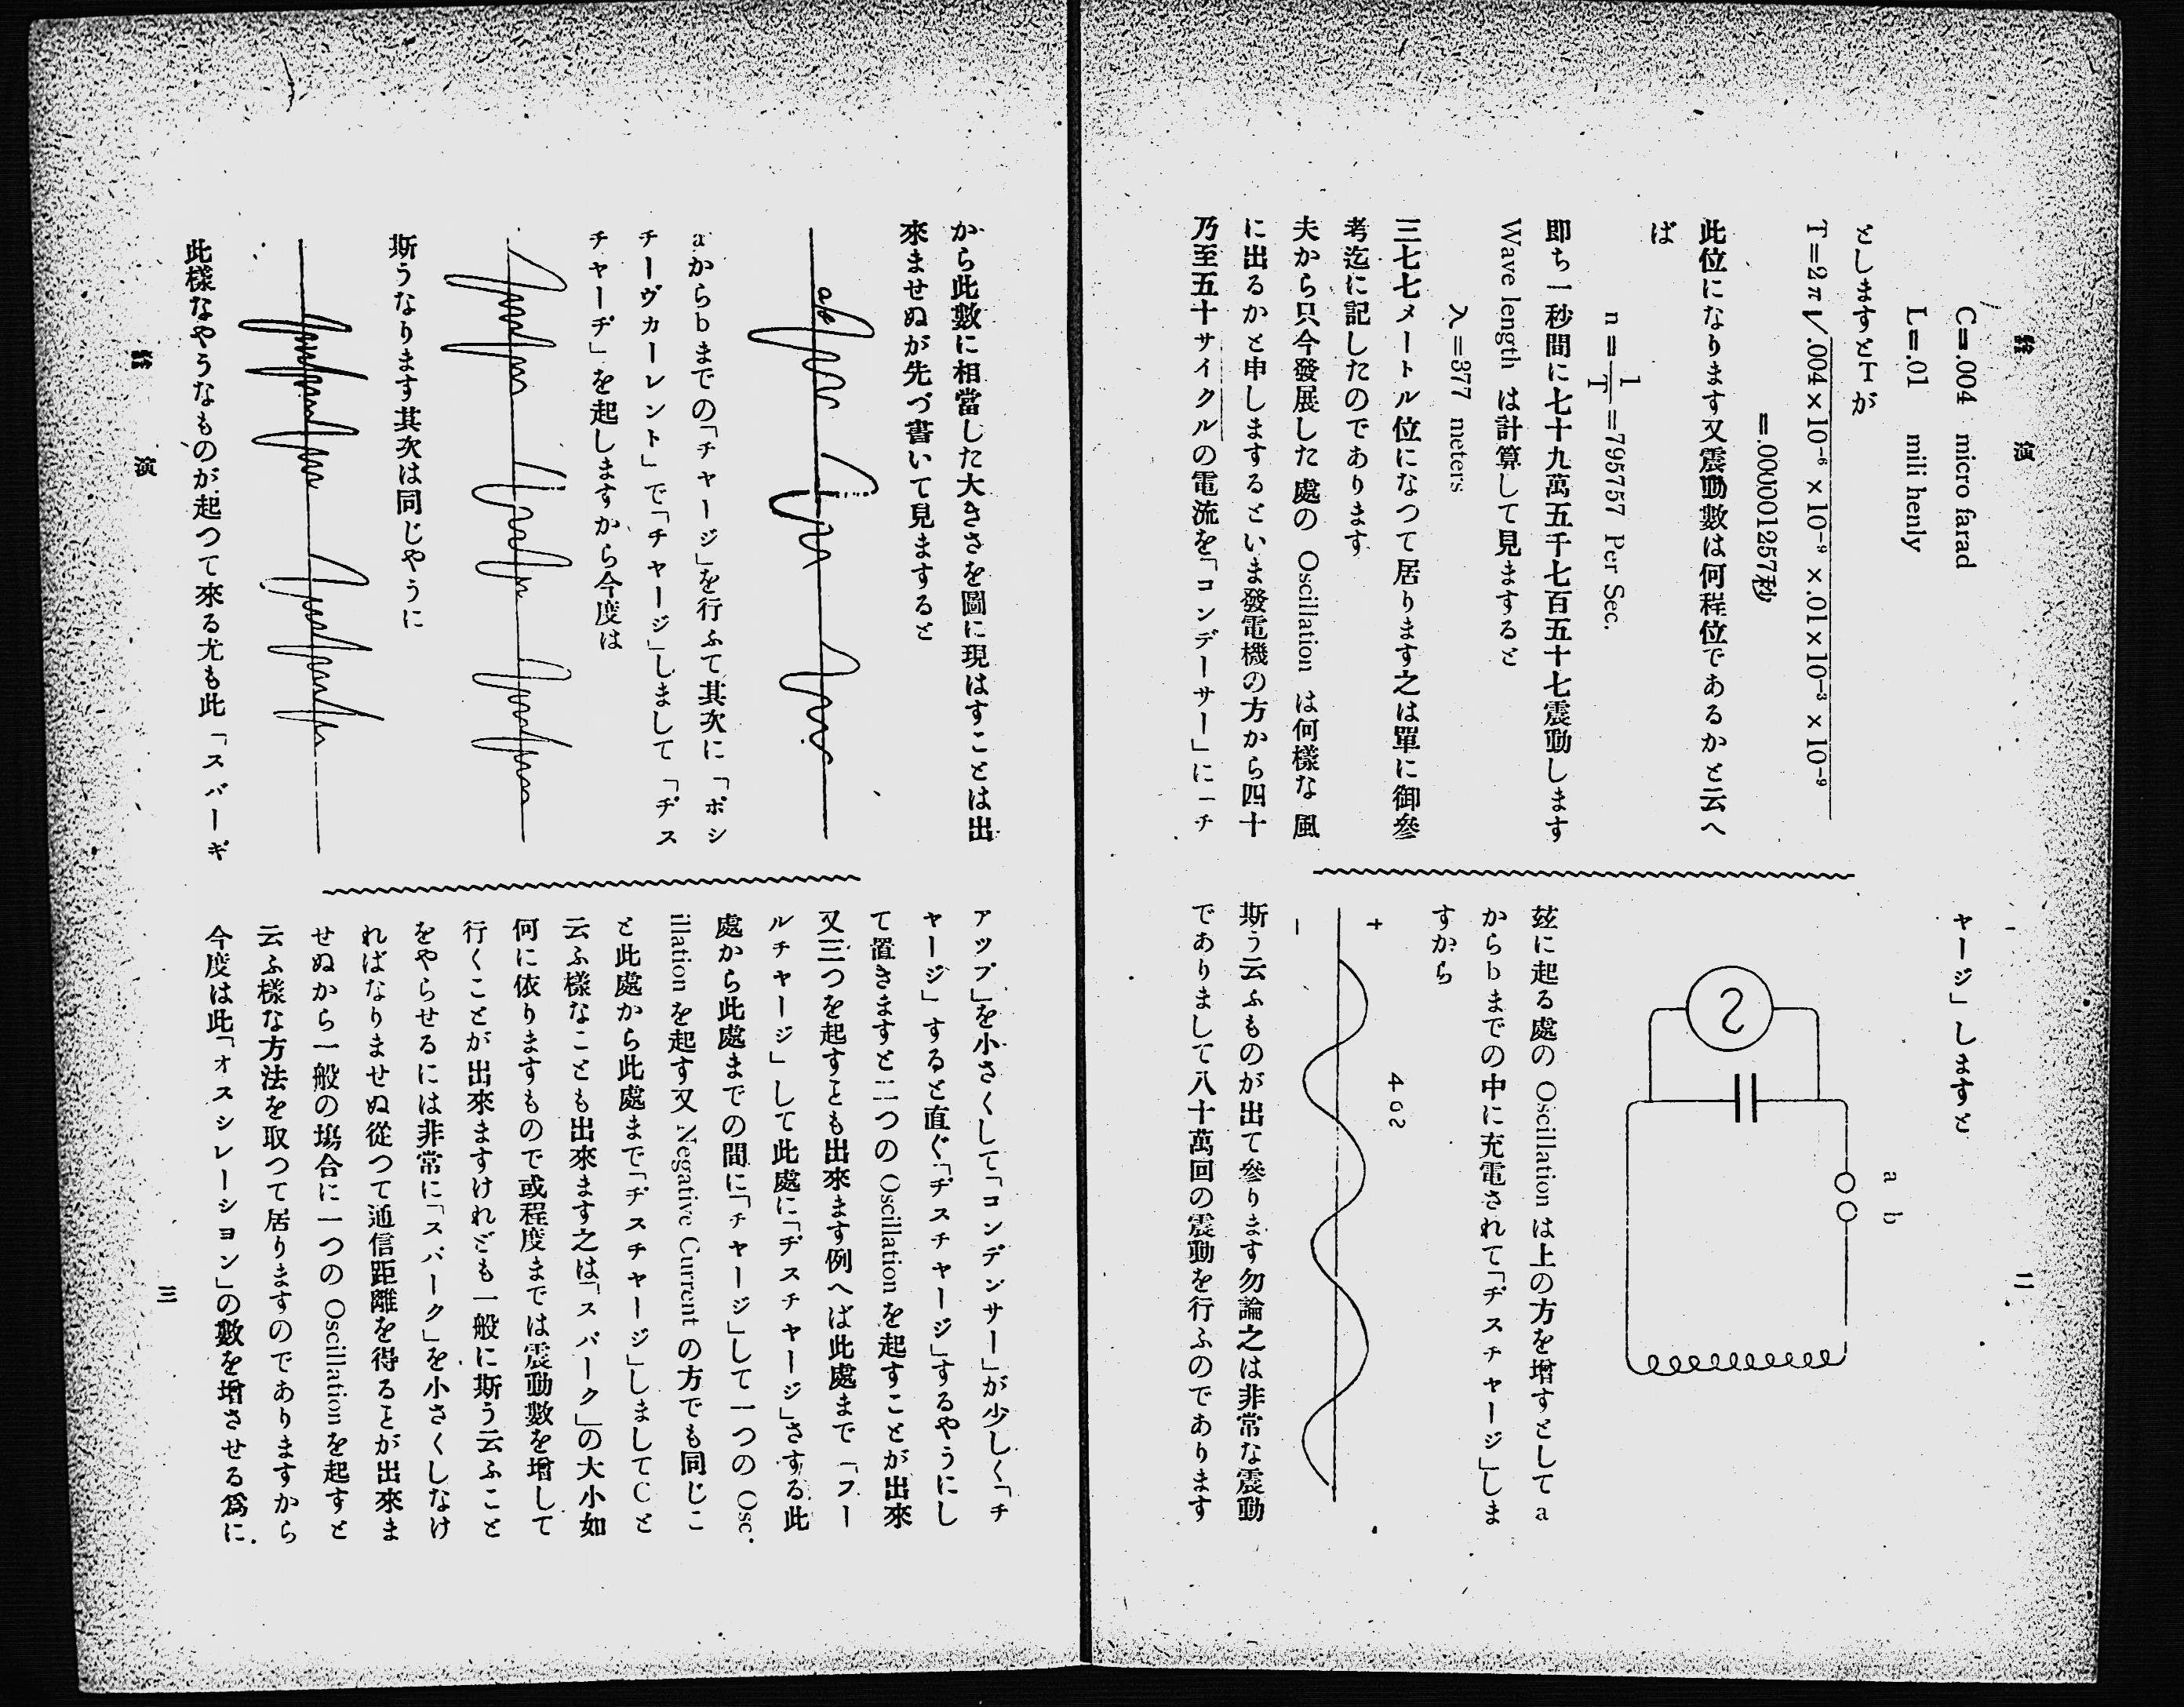 講演
二
C=.004 micro farad
L=.01 mili henly
としますとTが
T=2π√.004×10⁻⁶×10⁻⁹×.01×10⁻³×10⁻⁹
=.000001257秒
此位になります又震動數は何程位であるかと云へ
ば
n=1/T=795757 Per Sec.
即ち一秒間に七十九萬五千七百五十七震動します
Wave length は計算して見ますると
λ=377 meters
三七七メートル位になつて居ります之は單に御參
考迄に記したのであります
夫から只今發展した處の Oscillation は何樣な風
に出るかと申しまするといま發電機の方から四十
乃至五十サイクルの電流を「コンデーサー」に「チ
ャージ」しますと
a b
茲に起る處の Oscillation は上の方を增すとして a
からbまでの中に充電されて「ヂスチャージ」しま
すから
+
−
斯う云ふものが出て參ります勿論之は非常な震動
でありまして八十萬回の震動を行ふのであります
から此數に相當した大きさを圖に現はすことは出
來ませぬが先づ書いて見ますると
aからbまでの「チャージ」を行ふて其次に「ポシ
チーヴカーレント」で「チャージ」しまして「ヂス
チャーヂ」を起しますから今度は
斯うなります其次は同じやうに
此樣なやうなものが起つて來る尤も此「スパーギ
アップ」を小さくして「コンデンサー」が少しく「チ
ャージ」すると直ぐ「ヂスチャージ」するやうにし
て置きますと二つの Oscillation を起すことが出來
又三つを起すとも出來ます例へば此處まで「フー
ルチャージ」して此處に「ヂスチャージ」さする此
處から此處までの間に「チャージ」して一つの Osc.
illation を起す又 Negative Current の方でも同じこ
と此處から此處まで「ヂスチャージ」しましてCと
云ふ樣なことも出來ます之は「スパーク」の大小如
何に依りますもので或程度までは震動數を增して
行くことが出來ますけれども一般に斯う云ふこと
をやらせるには非常に「スパーク」を小さくしなけ
ればなりませぬ從つて通信距離を得るとが出來ま
せぬから一般の塲合に一つの Oscillation を起すと
云ふ樣な方法を取つて居りますのでありますから
今度は此「オスシレーション」の數を增させる爲に
講演
三